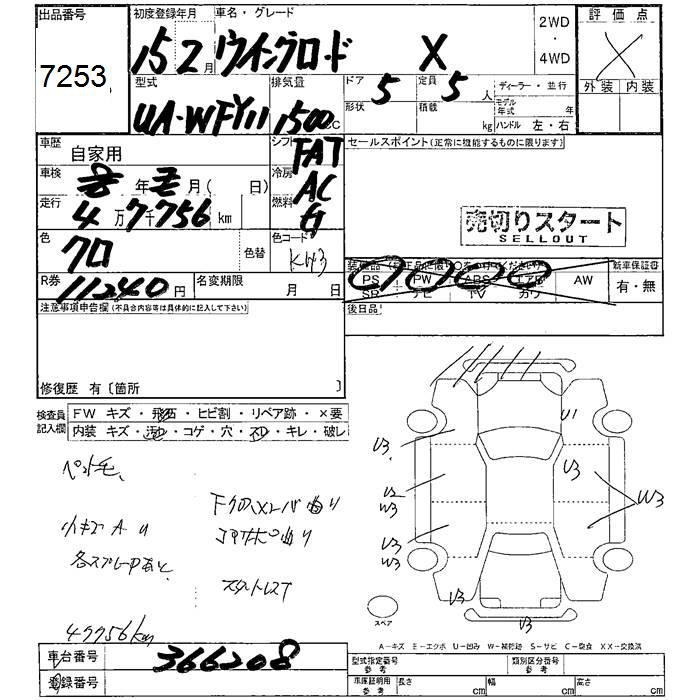 出品番号
7253
初度登録年月
車名・グレード
15年 2月 ウイングロード X
2WD
・
4WD
評価点
X
外装 内装
型式
UA-WFY11
排気量
1500 CC
ドア 5
形状
定員 5 人
積載 kg
ディーラー・並行
モデル年式 年
ハンドル 左・右
車歴
自家用
シフト
FAT
セールスポイント(正常に機能するものに限ります)
車検 年 月( 日)
冷房
AC
走行
4万7千756 km
燃料
G
売切りスタート
SELLOUT
色
クロ
色替
色コード
KH3
PS PW ABS エアB AW
SR ナビ TV カワ
新車保証書
有・無
R券
11240円
名変期限
月 日
後日品
注意事項申告欄(不具合内容等は具体的に記入して下さい)
修復歴 有〔箇所 〕
検査員
記入欄
FW キズ・飛石・ヒビ割・リペア跡・×要
内装 キズ・汚れ・コゲ・穴・スレ・キレ・破レ
ペット毛
小キズ A U
各スプレーFあと
47756km
スタットレスT
U1
U3
U3
U2
W3
W3
U3
W3
U3
U3
スペア
A-キズ E-エクボ U-凹み W-補修跡 S-サビ C-腐食 XX-交換済
車台番号
366208
登録番号
型式指定番号
参考
類別区分番号
参考
車庫証明用
参考
長さ cm
幅 cm
高さ cm